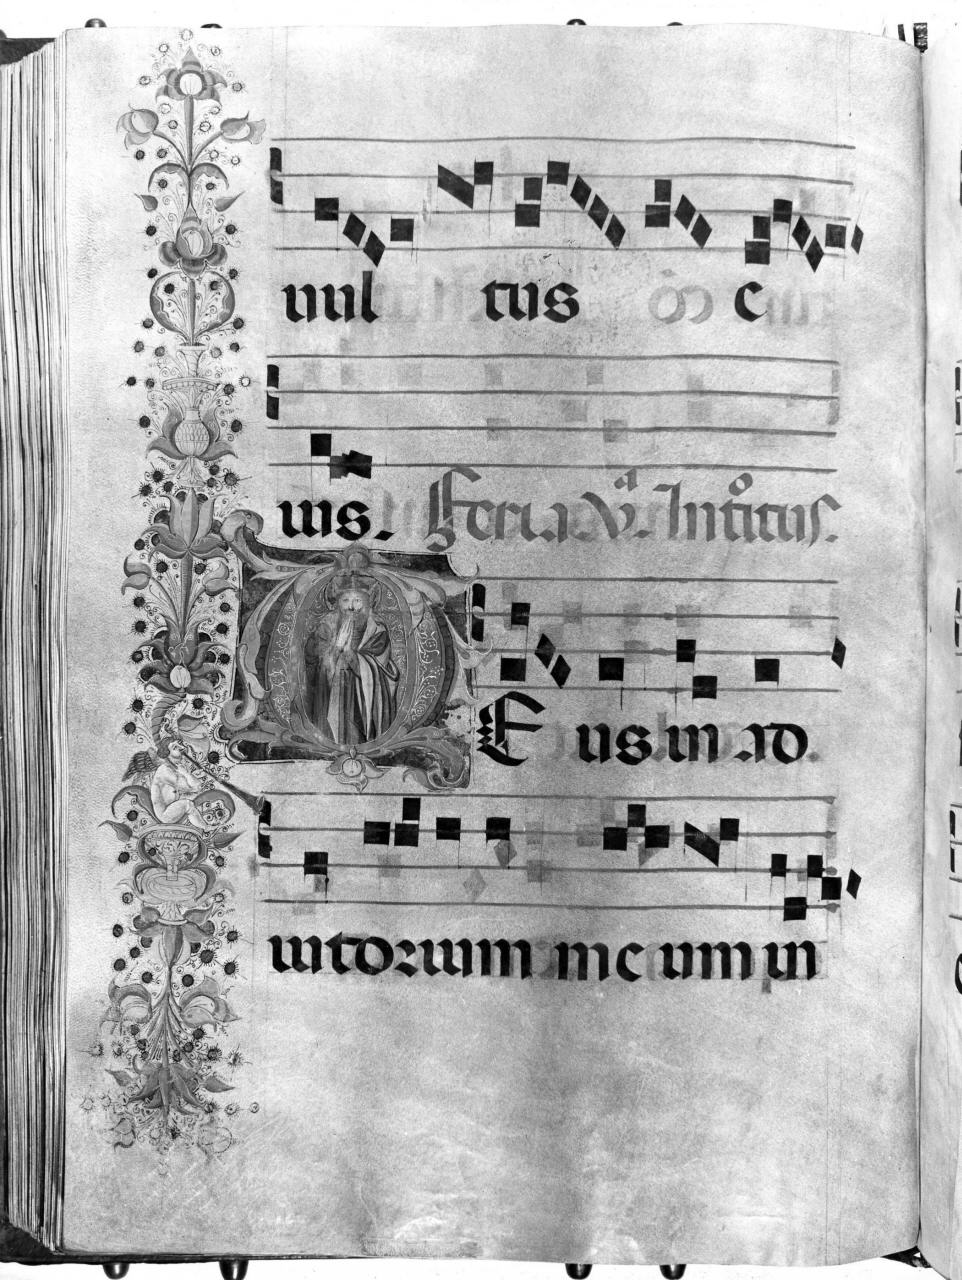 vul tus e
ius. Feria vª Introitus.
DEus in ad
iutorium meum in